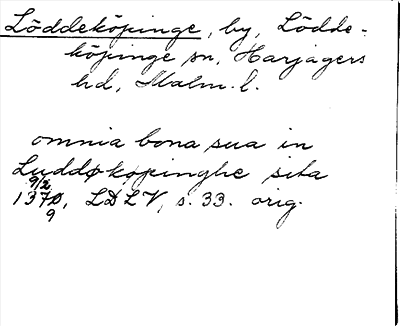 Löddeköpinge, by, Lödde-
köpinge sn, Harjagers
hd, Malm. l.
omnia bona sua in
Luddøkøpinghe sita
9/2
1370, LDLV, s. 33. orig.
9